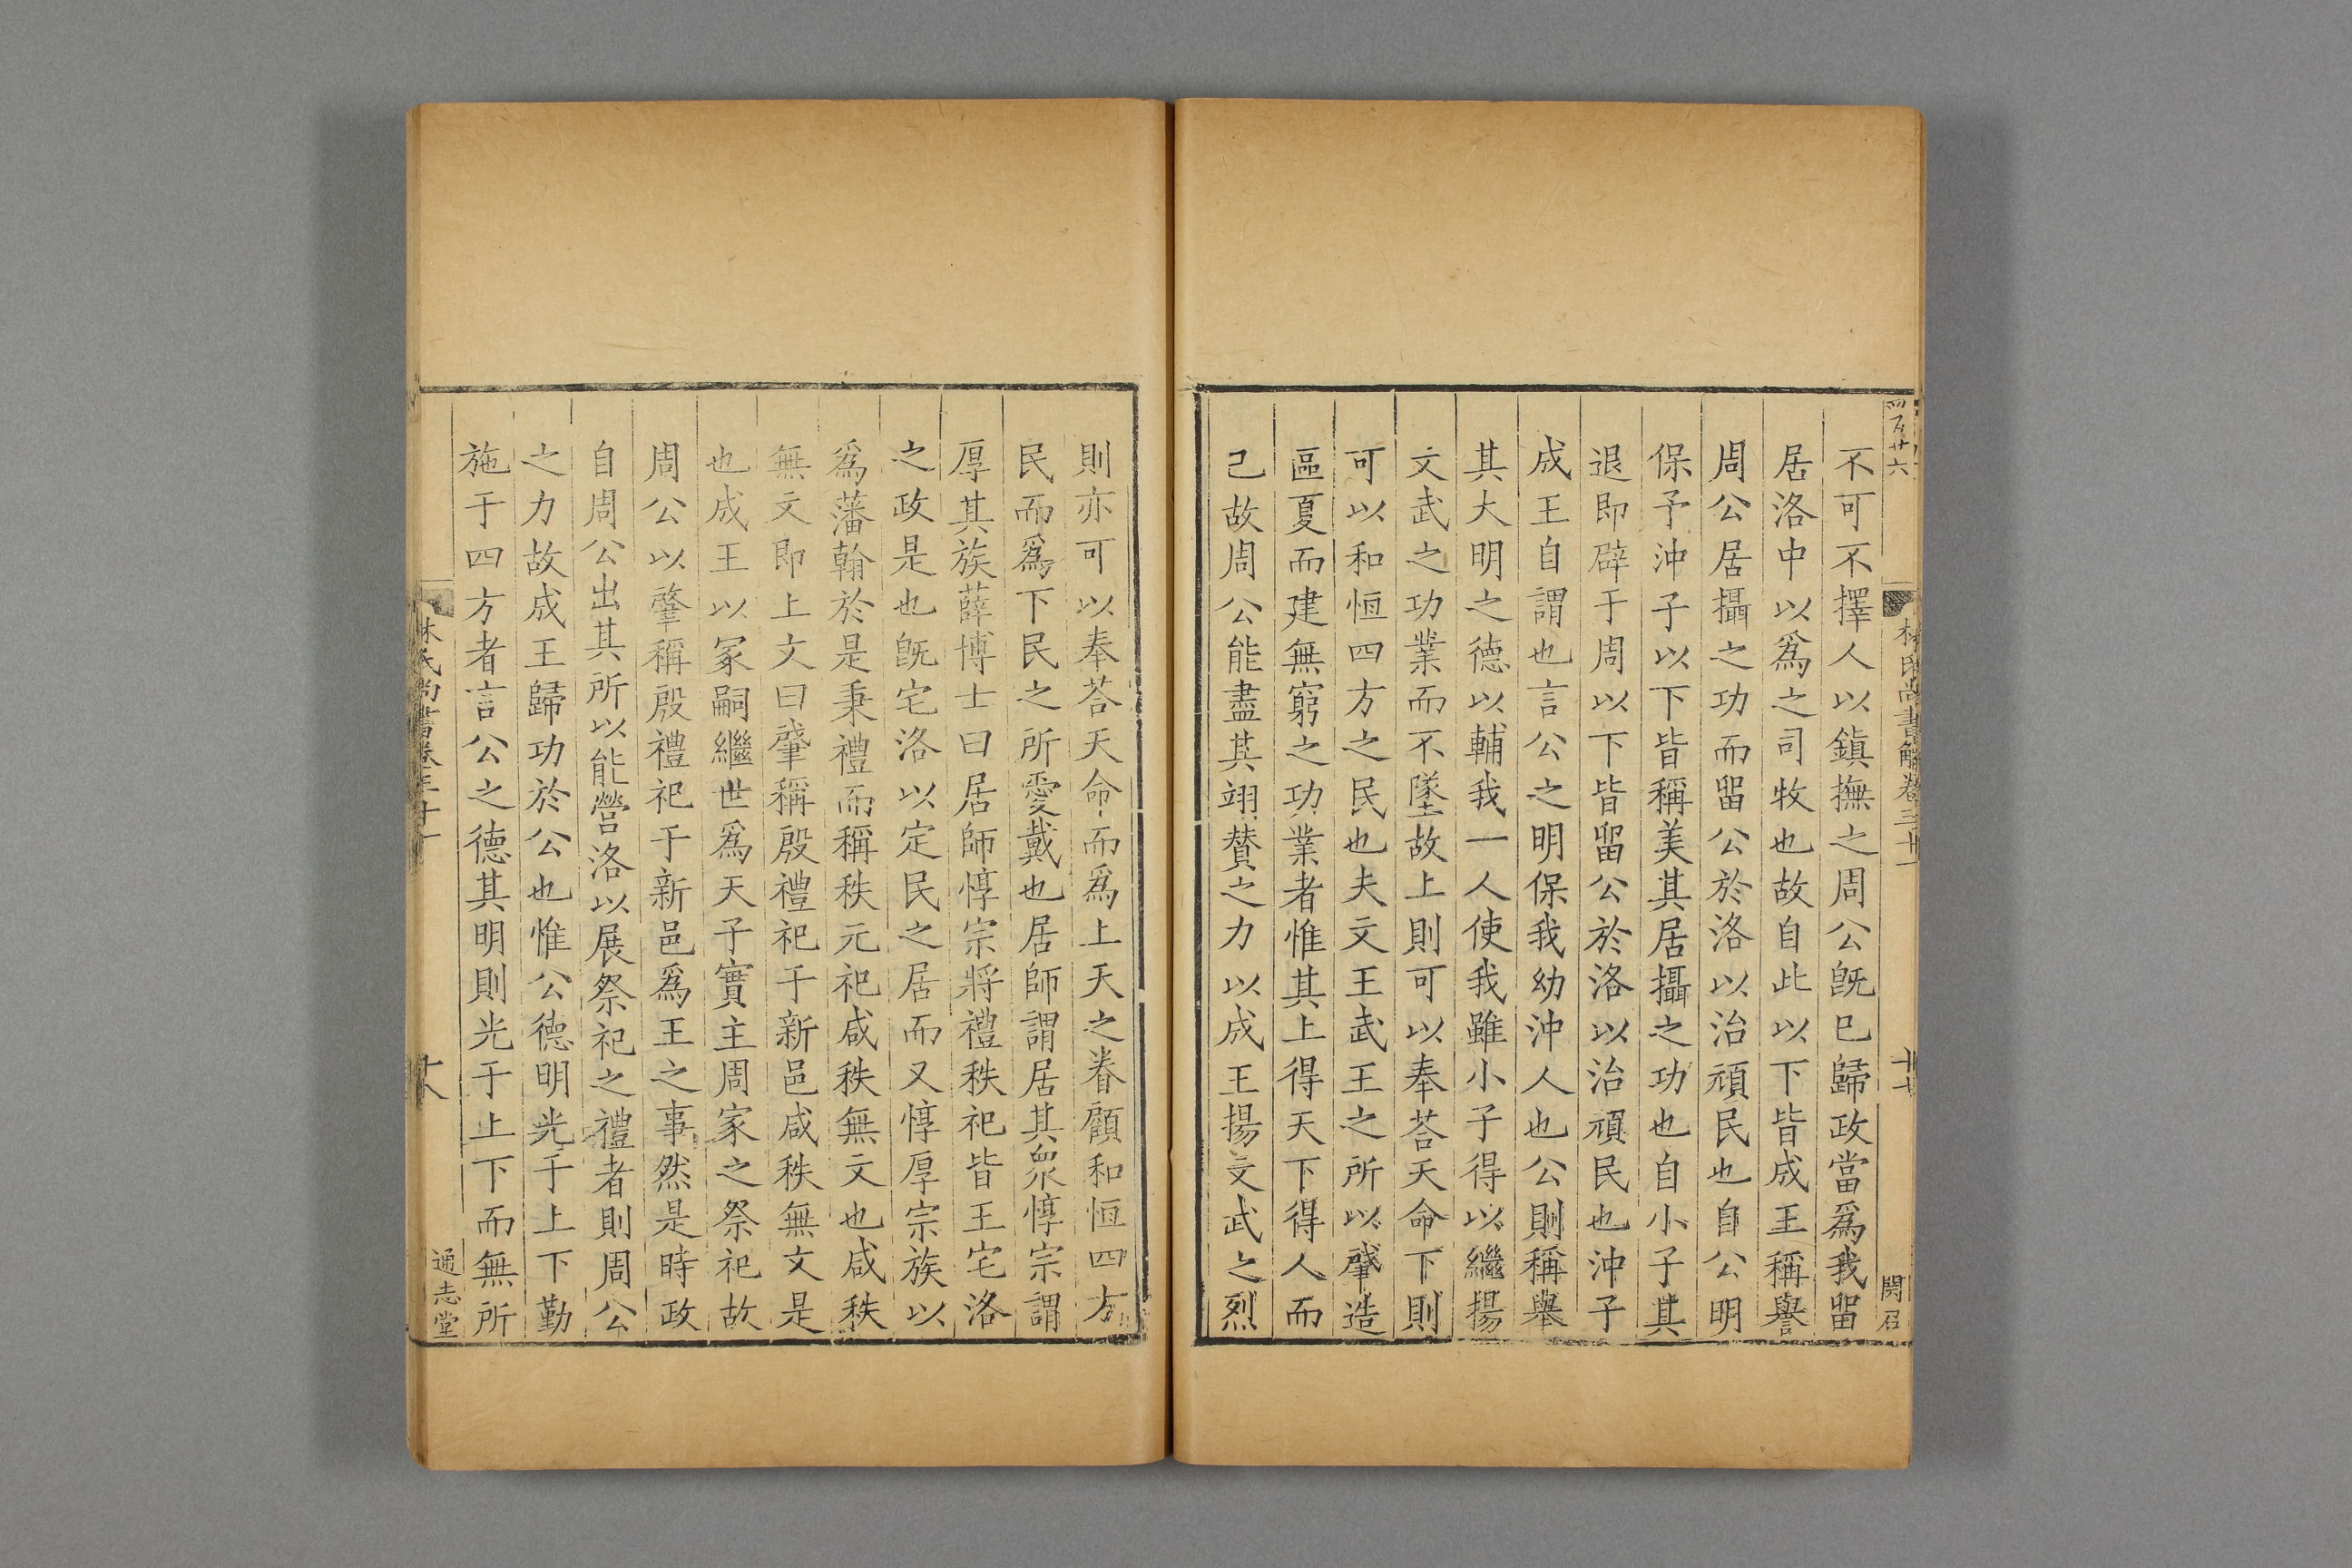 不可不擇人以鎮撫之周公既已歸政當爲我留
居洛中以爲之司牧也故自此以下皆成王稱譽
周公居攝之功而留公於洛以治頑民也自公明
保予沖子以下皆稱美其居攝之功也自小子其
退即辟于周以下皆留公於洛以治頑民也沖子
成王自謂也言公之明保我幼沖人也公則稱舉
其大明之德以輔我一人使我雖小子得以繼揚
文武之功業而不墜故上則可以奉荅天命下則
可以和恒四方之民也夫文王武王之所以肇造
區夏而建無窮之功業者惟其上得天下得人而
己故周公能盡其翊賛之力以成王揚文武之烈
則亦可以奉荅天命而爲上天之眷顧和恒四方
民而爲下民之所愛戴也居師謂居其衆惇宗謂
厚其族薛博士曰居師惇宗將禮秩祀皆王宅洛
之政是也既宅洛以定民之居而又惇厚宗族以
爲藩翰於是秉禮而稱秩元祀咸秩無文也咸秩
無文即上文曰肇稱殷禮祀于新邑咸秩無文是
也成王以冢嗣繼世爲天子實主周家之祭祀故
周公以肇稱殷禮祀于新邑爲王之事然是時政
自周公出其所以能營洛以展祭祀之禮者則周公
之力故成王歸功於公也惟公德明光于上下勤
施于四方者言公之德其明則光于上下而無所
通志堂